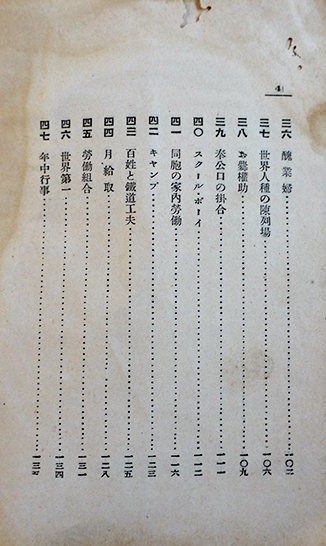 4
三六 醜業婦 一〇二
三七 世界人種の陳列場 一〇六
三八 お爨權助 一〇九
三九 奉公口の掛合 一一一
四〇 スクール・ボーイ 一一二
四一 同胞の家内勞働 一一六
四二 キャンプ 一二三
四三 百姓と鐵道工夫 一二五
四四 月給取 一二八
四五 勞働組合 一三一
四六 世界第一 一三四
四七 年中行事 一三五